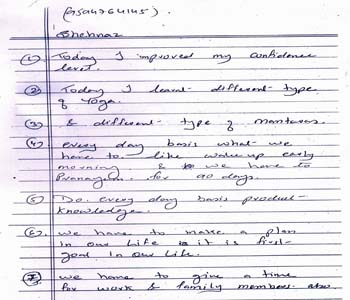 (9594764145).
Shehnaz
① Today I improved my confidence
level.
② Today I learnt different type
of Yoga.
③ & different type of mantaras.
④ every day basis what we
have to like wake up early
morning. & we have to
Pranayam. for 90 days.
⑤ Do. every day basis product
knowledge.
⑥ we have to make a plan
In our Life it is first
goal In our Life.
⑦ we have to give a time
for work & family members also